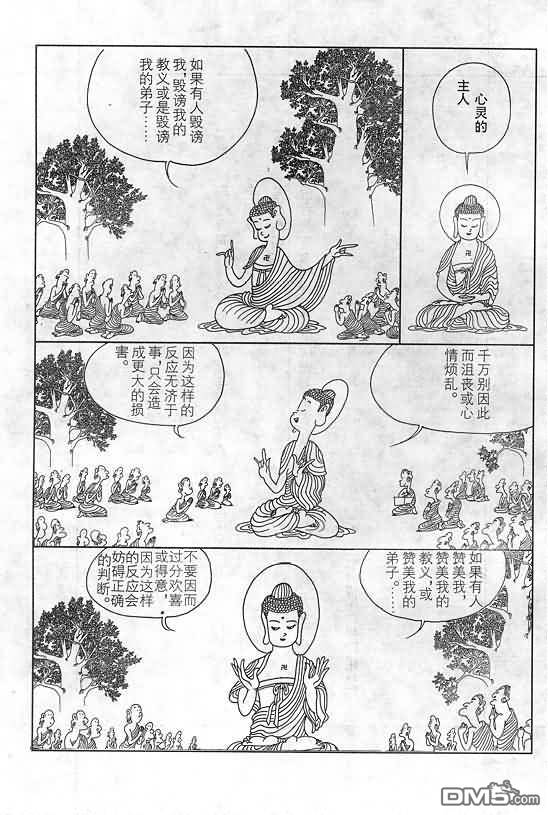 心灵的
主人
如果有人毁谤
我,毁谤我的
教义或是毁谤
我的弟子……
千万别因此
而沮丧或心
情烦乱。
因为这样的
反应无济于
事,只会造
成更大的损
害。
如果有人
赞美我,
赞美我的
教义,或
赞美我的
弟子。……
不要因而
过分欢喜
或得意,
因为这样
的反应会
妨碍正确
的判断。
卍
卍
卍
DM5.com